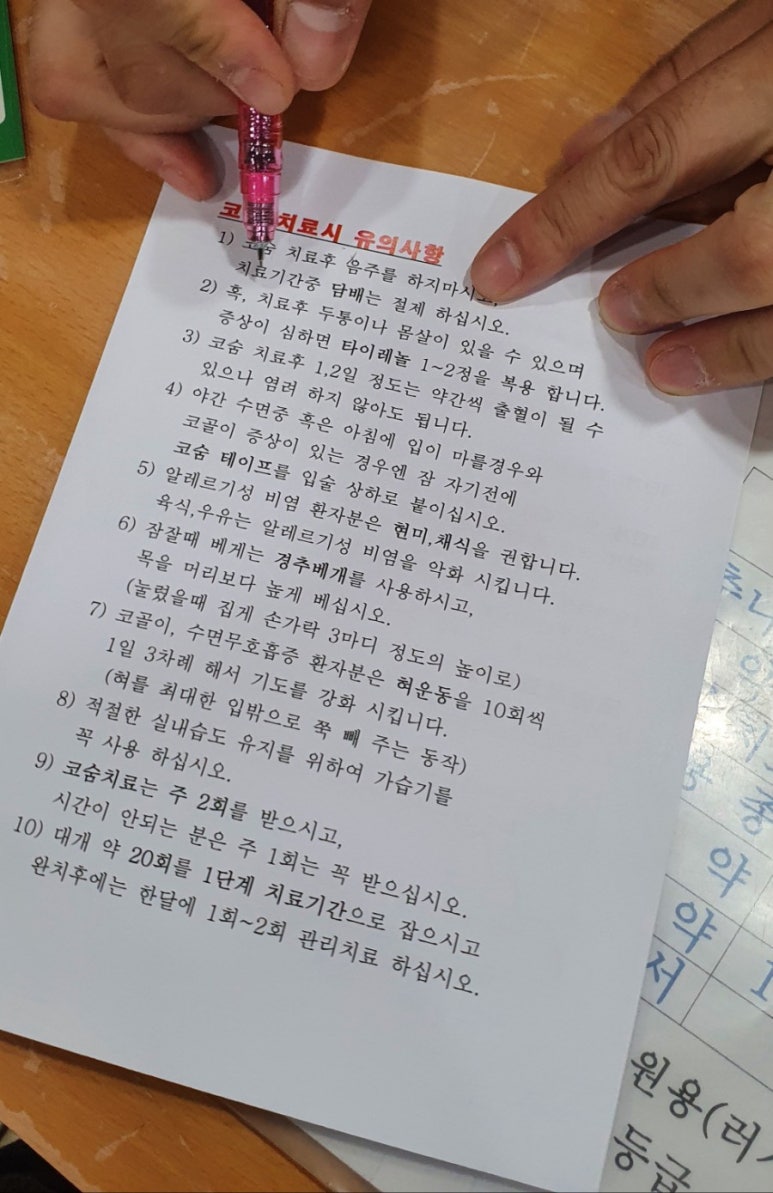 코 치료시 유의사항
1) 코숨 치료후 음주를 하지마시고,
치료기간중 담배는 절제 하십시오.
2) 혹, 치료후 두통이나 몸살이 있을 수 있으며
증상이 심하면 타이레놀 1~2정을 복용 합니다.
3) 코숨 치료후 1,2일 정도는 약간씩 출혈이 될 수
있으나 염려 하지 않아도 됩니다.
4) 야간 수면중 혹은 아침에 입이 마를경우와
코골이 증상이 있는 경우엔 잠 자기전에
코숨 테이프를 입술 상하로 붙이십시오.
5) 알레르기성 비염 환자분은 현미,채식을 권합니다.
육식,우유는 알레르기성 비염을 악화 시킵니다.
6) 잠잘때 베게는 경추베개를 사용하시고,
목을 머리보다 높게 베십시오.
(눌렀을때 집게 손가락 3마디 정도의 높이로)
7) 코골이, 수면무호흡증 환자분은 혀운동을 10회씩
1일 3차례 해서 기도를 강화 시킵니다.
(혀를 최대한 입밖으로 쭉 빼 주는 동작)
8) 적절한 실내습도 유지를 위하여 가습기를
꼭 사용 하십시오.
9) 코숨치료는 주 2회를 받으시고,
시간이 안되는 분은 주 1회는 꼭 받으십시오.
10) 대개 약 20회를 1단계 치료기간으로 잡으시고
완치후에는 한달에 1회~2회 관리치료 하십시오.
약
약
저 1
원용(러
등급